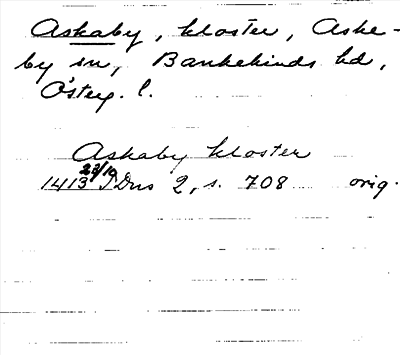 Askaby, kloster, Aske-
by sn, Bankekinds hd,
Österg. l.
Askaby kloster
1413 23/10 SDns 2, s. 708 orig.